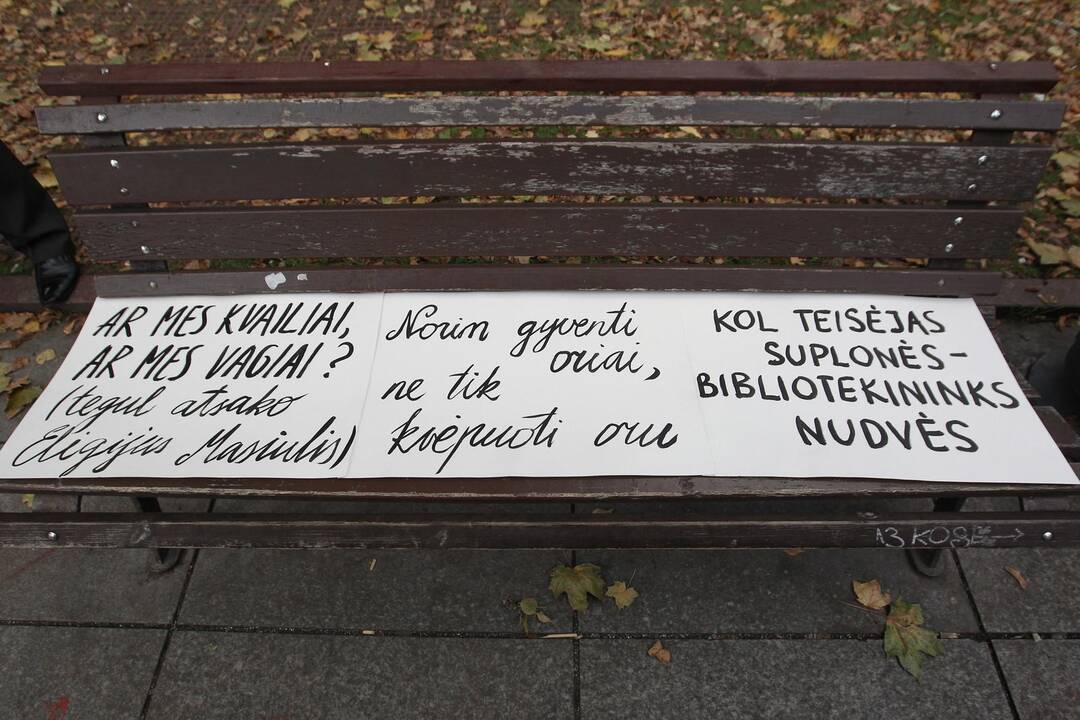 AR MES KVAILIAI,
AR MES VAGIAI?
(tegul atsako
Eligijus Masiulis)
Norim gyventi
oriai,
ne tik
kvėpuoti oru
KOL TEISĖJAS
SUPLONĖS-
BIBLIOTEKININKS
NUDVĖS